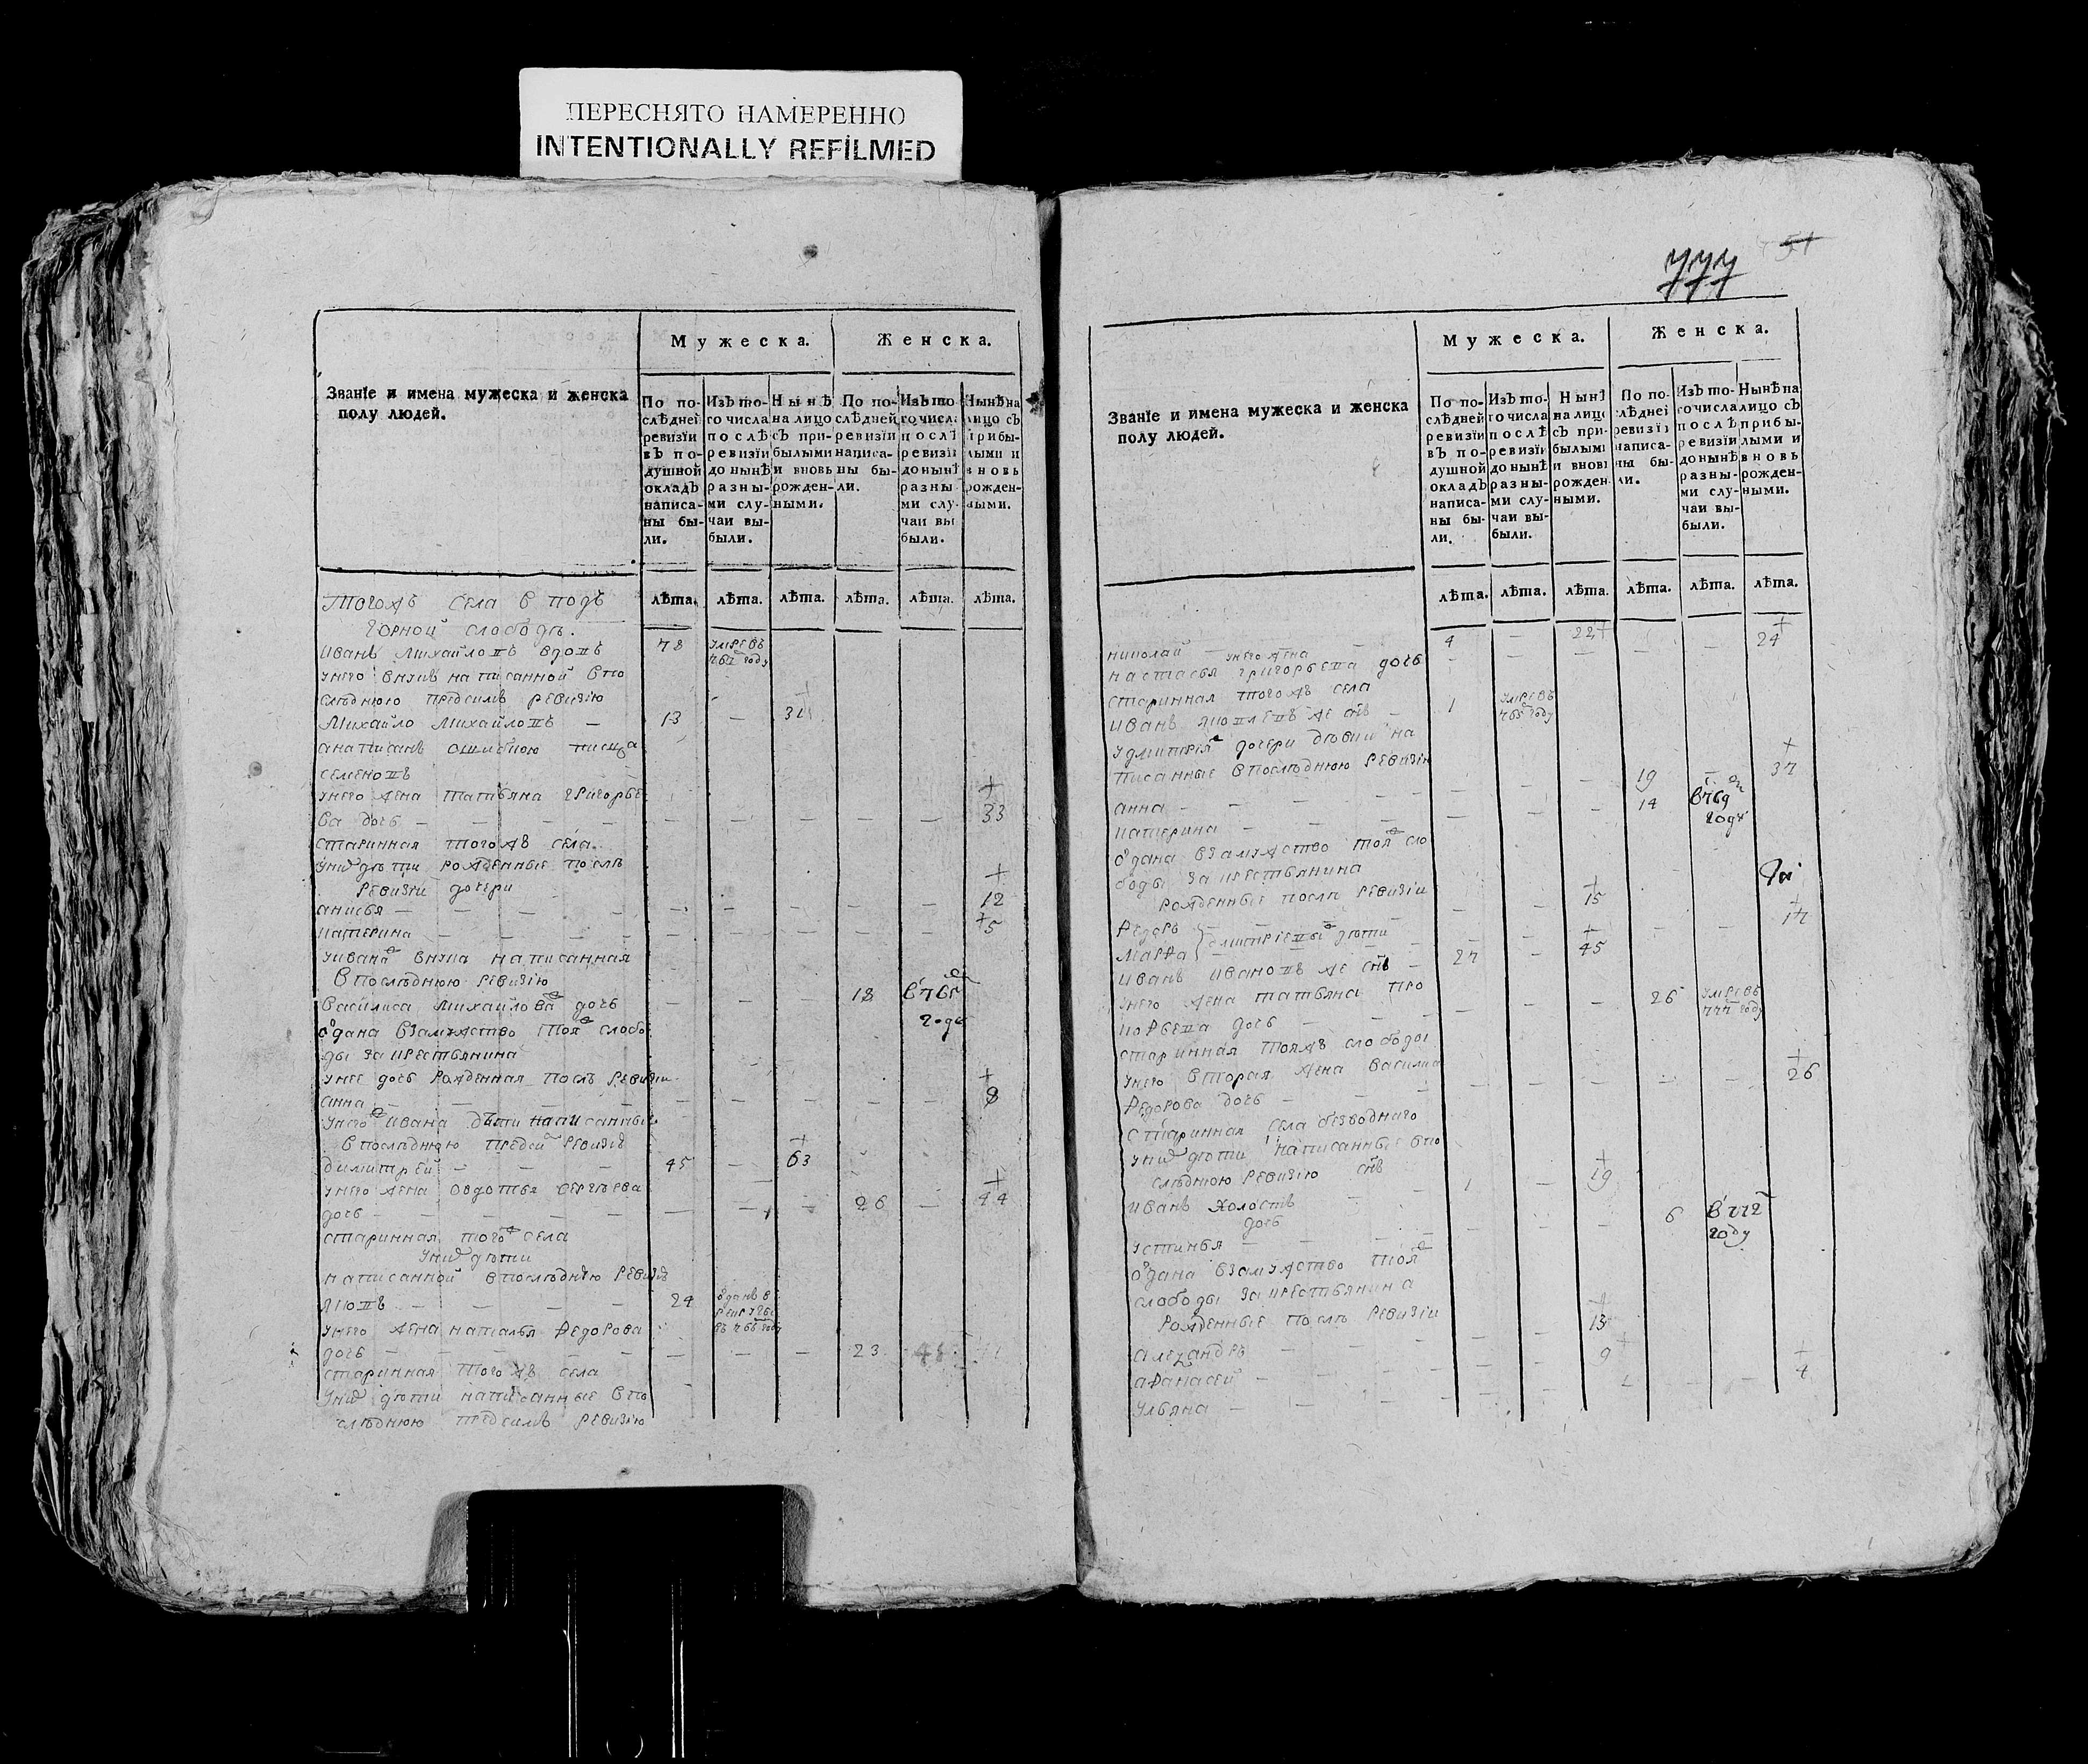 ПЕРЕСНЯТО НАМЕРЕННО
INTENTIONALLY REFILMED
777
51
Званїе и имена мужеска и женска
полу людей.
Мужеска.
Женска.
По по-
слѣдней
ревизїи
въ по-
душной
окладъ
написа-
ны бы-
ли.
Изъ то-
го числа
послѣ
ревизїи
до нынѣ
разны-
ми слу-
чаи вы-
были.
Нынѣ
на лицо
съ при-
былыми
и вновь
рожден-
ными.
По по-
слѣдней
ревизїи
написа-
ны бы-
ли.
Изъ то
го числа
послѣ
ревизїи
до нынѣ
разны
ми слу-
чаи вы
были.
Нынѣ на
лицо съ
прибы-
лыми и
вновь
рожден-
ными.
лѣта. лѣта. лѣта. лѣта. лѣта. лѣта.
тогожъ села в подъ
горной слободѣ.
иванъ михайловъ вдовъ 78 умре въ
762 году
унего внукъ написанной в по
слѣднюю предсимъ ревизїю
михайло михайловъ — 13 —
анаписанъ ошибкою писца
семеновъ
унего жена татьяна григорье
ва дочь — — — — 33
старинная тогожъ села
уних дѣти рожденные послѣ
ревизїи дочери
анисья — — — — 12
катерина — — — — 5
уивана внука написанная
в послѣднюю ревизїю
василиса михайлова дочь — — 18
году
одана взамужство тояж слобо
ды за крестьянина
унее дочь рожденная послѣ ревизїи
анна — — — — 8
унегож ивана дѣти написанные
в послѣднюю предсей ревизїю
димитрей — — — 45 — 63
унего жена овдотья сергѣева
дочь — — — — 26 — 44
старинная тогож села
уних дѣти
написанной в послѣднюю ревизїю
яковъ — — — — 24
унего жена наталья федорова
дочь — — — — 23
старинная тогожъ села
уних дѣти написанные в по
слѣднюю предсимъ ревизїю
Званїе и имена мужеска и женска
полу людей.
Мужеска.
Женска.
По по-
слѣдней
ревизїи
въ по-
душной
окладъ
написа-
ны бы-
ли.
Изъ то-
го числа
послѣ
ревизїи
до нынѣ
разны-
ми слу-
чаи вы-
были.
Нынѣ
на лицо
съ при-
былыми
и вновь
рожден-
ными.
По по-
слѣдней
ревизїи
написа-
ны бы-
ли.
Изъ то-
го числа
послѣ
ревизїи
до нынѣ
разны-
ми слу-
чаи вы-
были.
Нынѣ на
лицо съ
прибы-
лыми и
вновь
рожден-
ными.
лѣта. лѣта. лѣта. лѣта. лѣта. лѣта.
николай — 4 — 22
унего жена
настасья григорьева дочь 24
старинная тогожъ села
иванъ яковлевъ же снъ — 1 умре въ
765 году
удмитрїя дочери девки на
писанные в послѣднюю ревизїю
анна — — — 19 — 37
катерина — — — 14 в 769
году
одана взамужство тояж сло
боды за крестьянина
рожденные послѣ ревизїи
федоръ — — 15
марфа дмитрїевы дѣти 17
иванъ ивановъ же снъ — 27 — 45
унего жена татьяна про
кофьева дочь — — 26 умре въ
777 году
старинная тояжъ слободы
унего вторая жена василиса
федорова дочь — — — 26
старинная села безводнаго
уних дѣти написанные в по
слѣднюю ревизїю снъ
иванъ холостъ 1 — 19
дочь
устинья — — — 6 в 772
году
одана взамужство тояж
слободы за крестьянина
рожденные послѣ ревизїи
александръ — — 13
афанасей — — 9
ульяна — — — 4